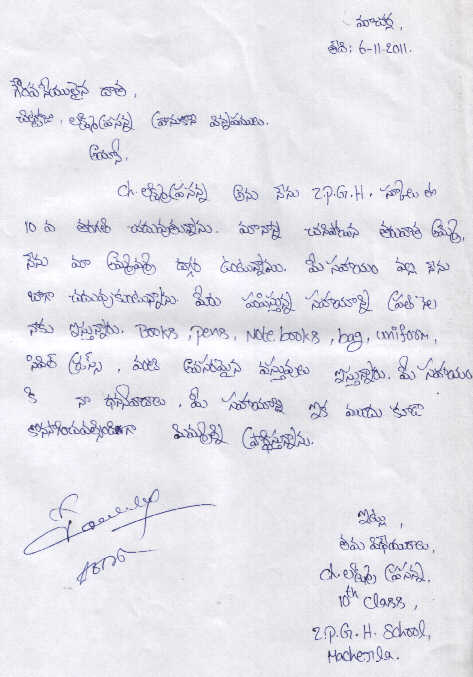 మాచర్ల,
తేది: 6-11-2011.
గౌరవనీయులైన దాత,
చి. లక్ష్మీ ప్రసన్న వ్రాయునది విన్నపములు.
అయ్యా,
ch. లక్ష్మీ ప్రసన్న అను నేను Z.P.G.H. స్కూలు లో
10 వ తరగతి చదువుతున్నాను. మా నాన్న చనిపోయిన తరువాత అమ్మ,
నేను మా అమ్మమ్మ దగ్గర ఉంటున్నాము. మీ సహాయం వల్ల నేను
బాగా చదువుకుంటున్నాను. మీరు పంపిస్తున్న సహాయాన్ని ప్రతి నెల
నాకు ఇస్తున్నారు. Books, pens, Note.books, bag, uniform,
సివిల్ డ్రస్స్, వంటి అవసరమైన వస్తువులు ఇస్తున్నారు. మీ సహాయం
కి నా ధన్యవాదాలు. మీ సహాయాన్ని ఇక ముందు కూడా
కొనసాగించవల్సిందిగా మిమ్మల్ని ప్రార్థిస్తున్నాను.
ఇట్లు,
తమ విధేయురాలు,
ch. లక్ష్మీ ప్రసన్న.
10th Class,
Z.P.G.H. School,
Macherla.